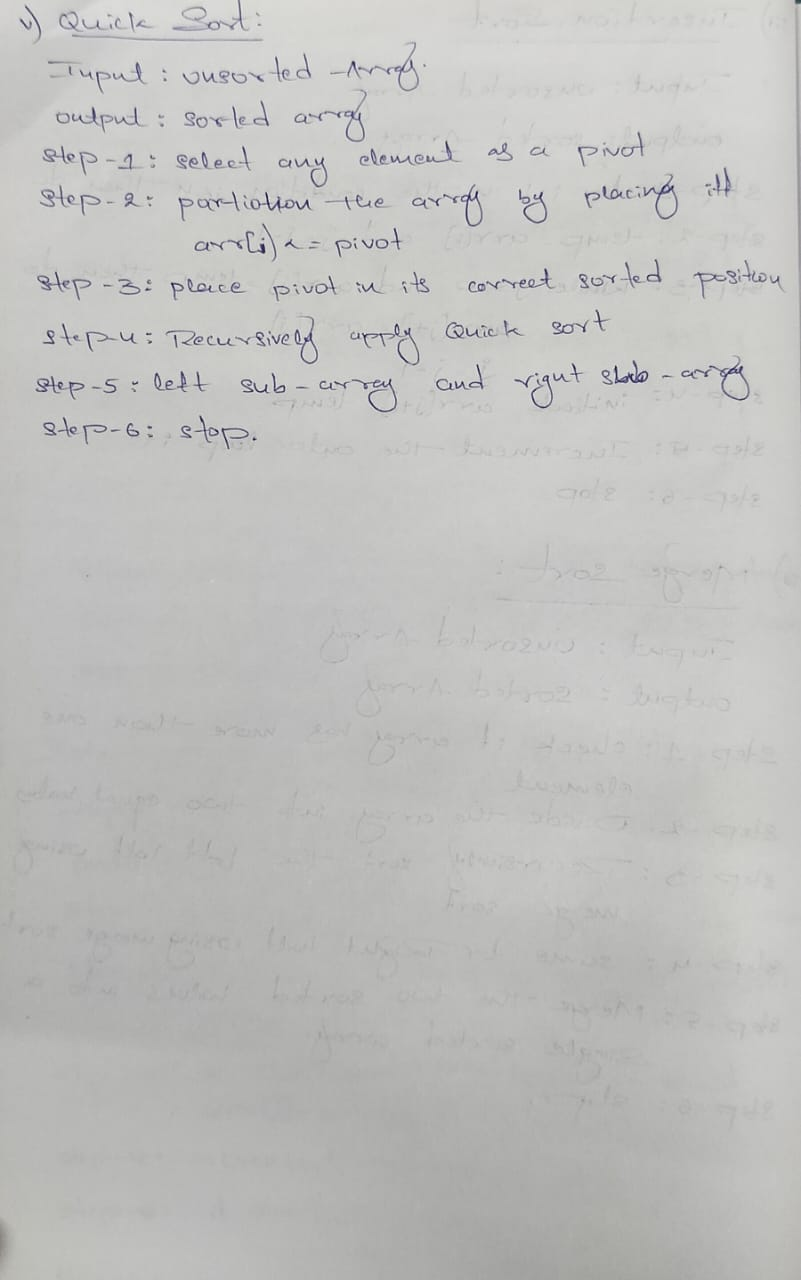 v) Quick Sort:
Input : unsorted -Array.
output : sorted array
step -1 : select any element as a pivot
step - 2 : partiotion the array by placing it
arr[i] <= pivot
step -3 : place pivot in its correct sorted position
step-4 : Recursively apply Quick sort
step -5 : left sub - array and right sub - array
step-6 : stop.